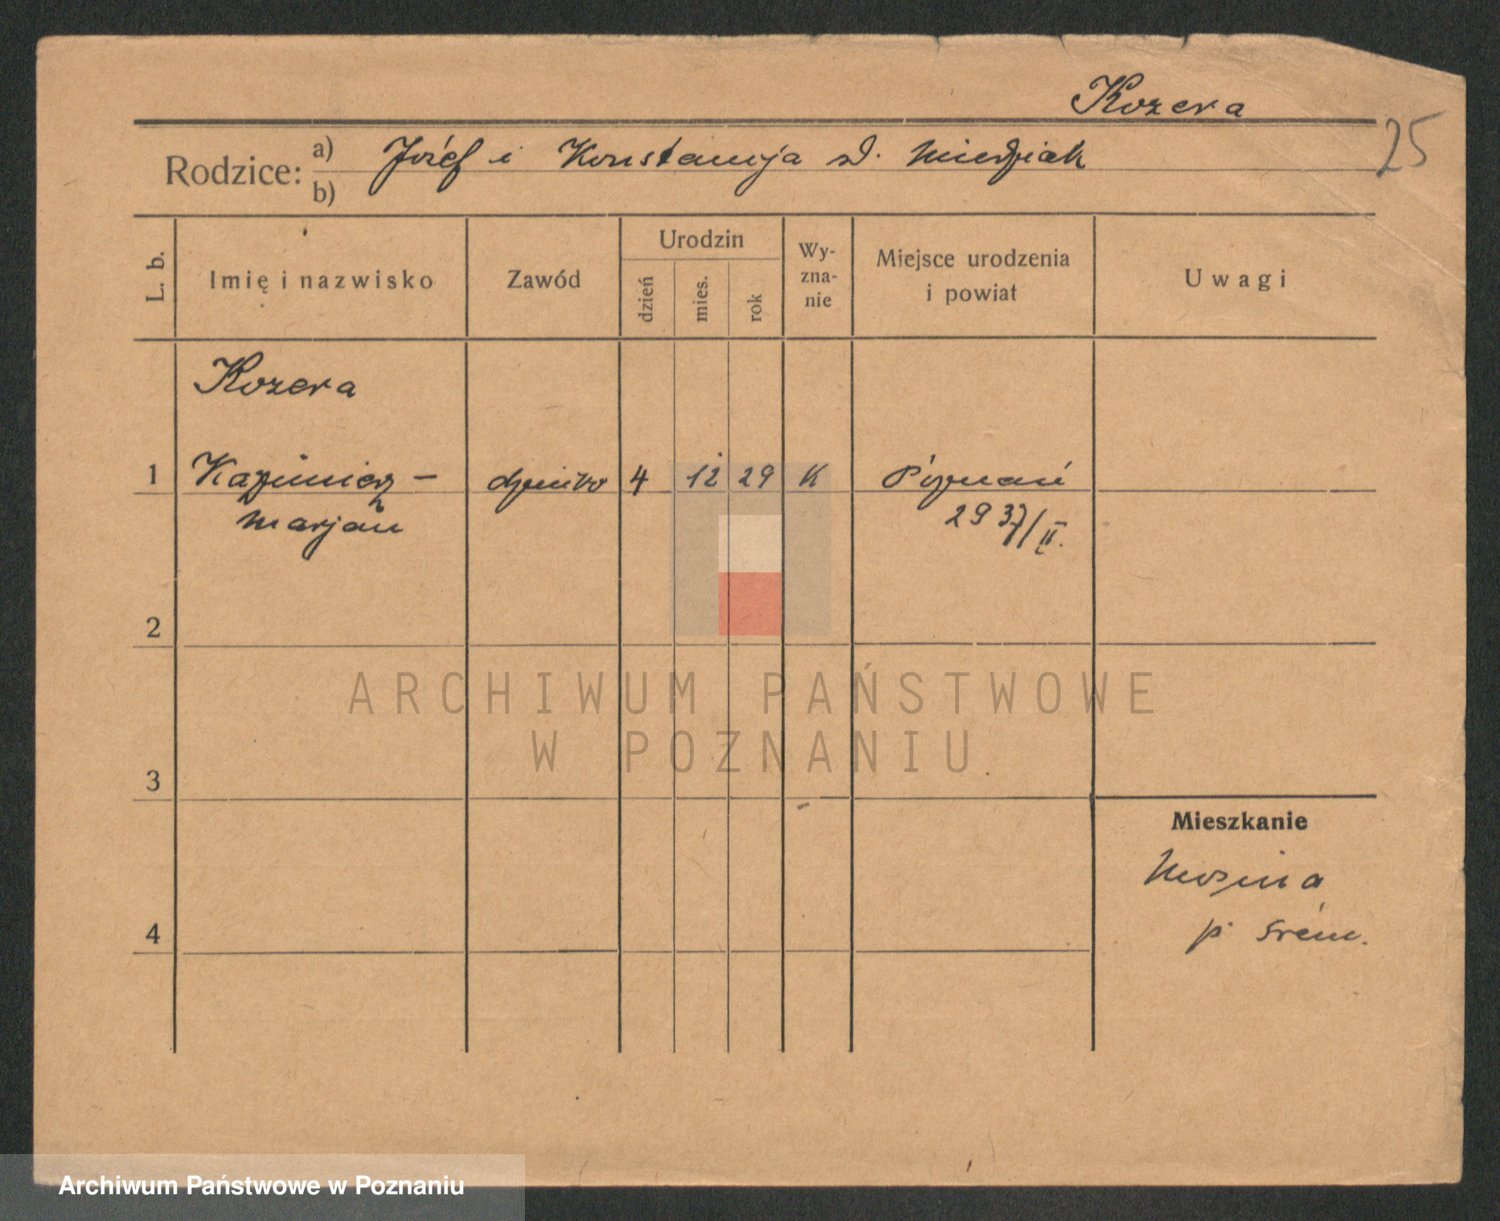 Kozera
25
Rodzice: a) Józef i Konstancja z d. Miedziak
b)
L. b. Imię i nazwisko Zawód Urodzin dzień mies. rok Wy-zna-nie Miejsce urodzenia i powiat Uwagi
Kozera
1 Kazimierz – dziecko 4 12 29 K Poznań
Marjan 29 37/II.
2
ARCHIWUM PAŃSTWOWE
W POZNANIU
3
Mieszkanie
Mosina
4 p. Śrem.
Archiwum Państwowe w Poznaniu